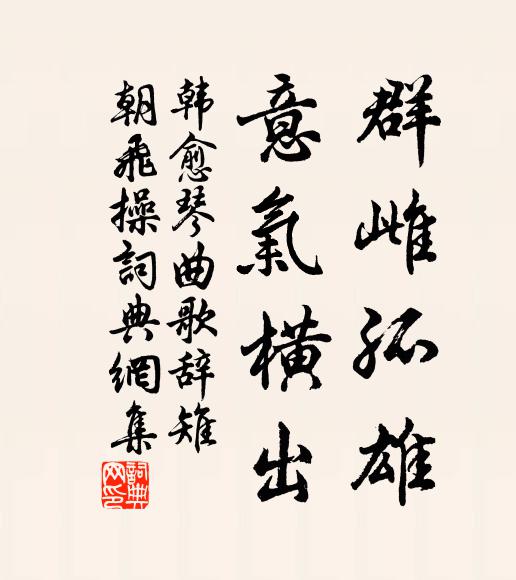 群雌孤雄
意氣橫出
韩愈琴曲歌辞雉
朝飛操詞典網集